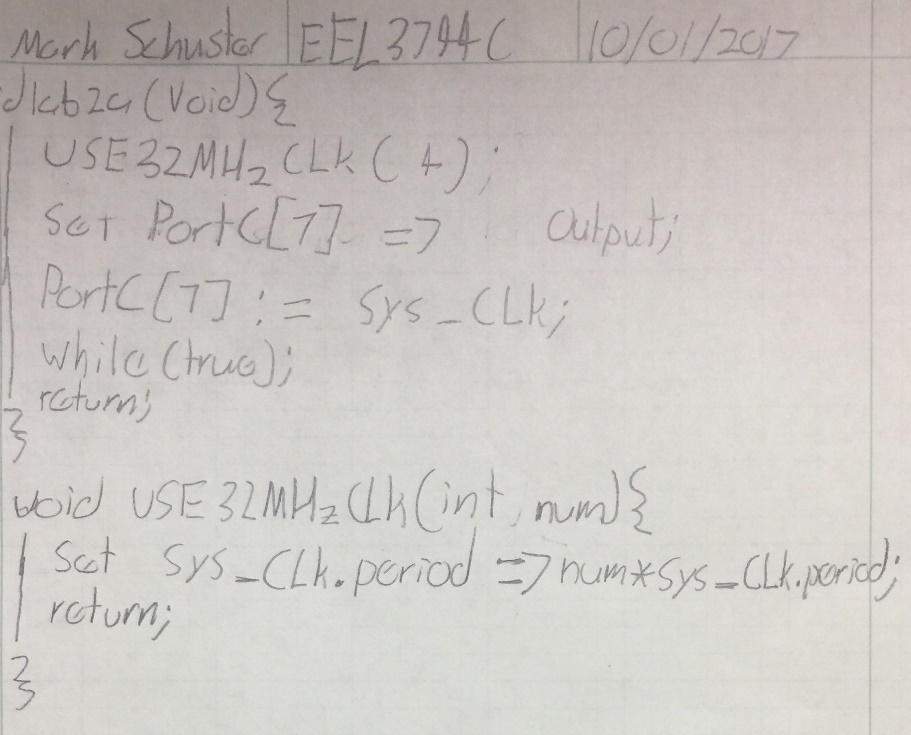 Mark Schuster EEL3744C 10/01/2017
d lab2a (Void) {
USE32MHz CLK ( 4 );
Set PortC[7] => Output;
PortC[7] := Sys_CLK;
While (true);
return;
}
void USE32MHzClk(int, num) {
Set Sys_CLk.period => num*Sys_CLk.period;
return;
}